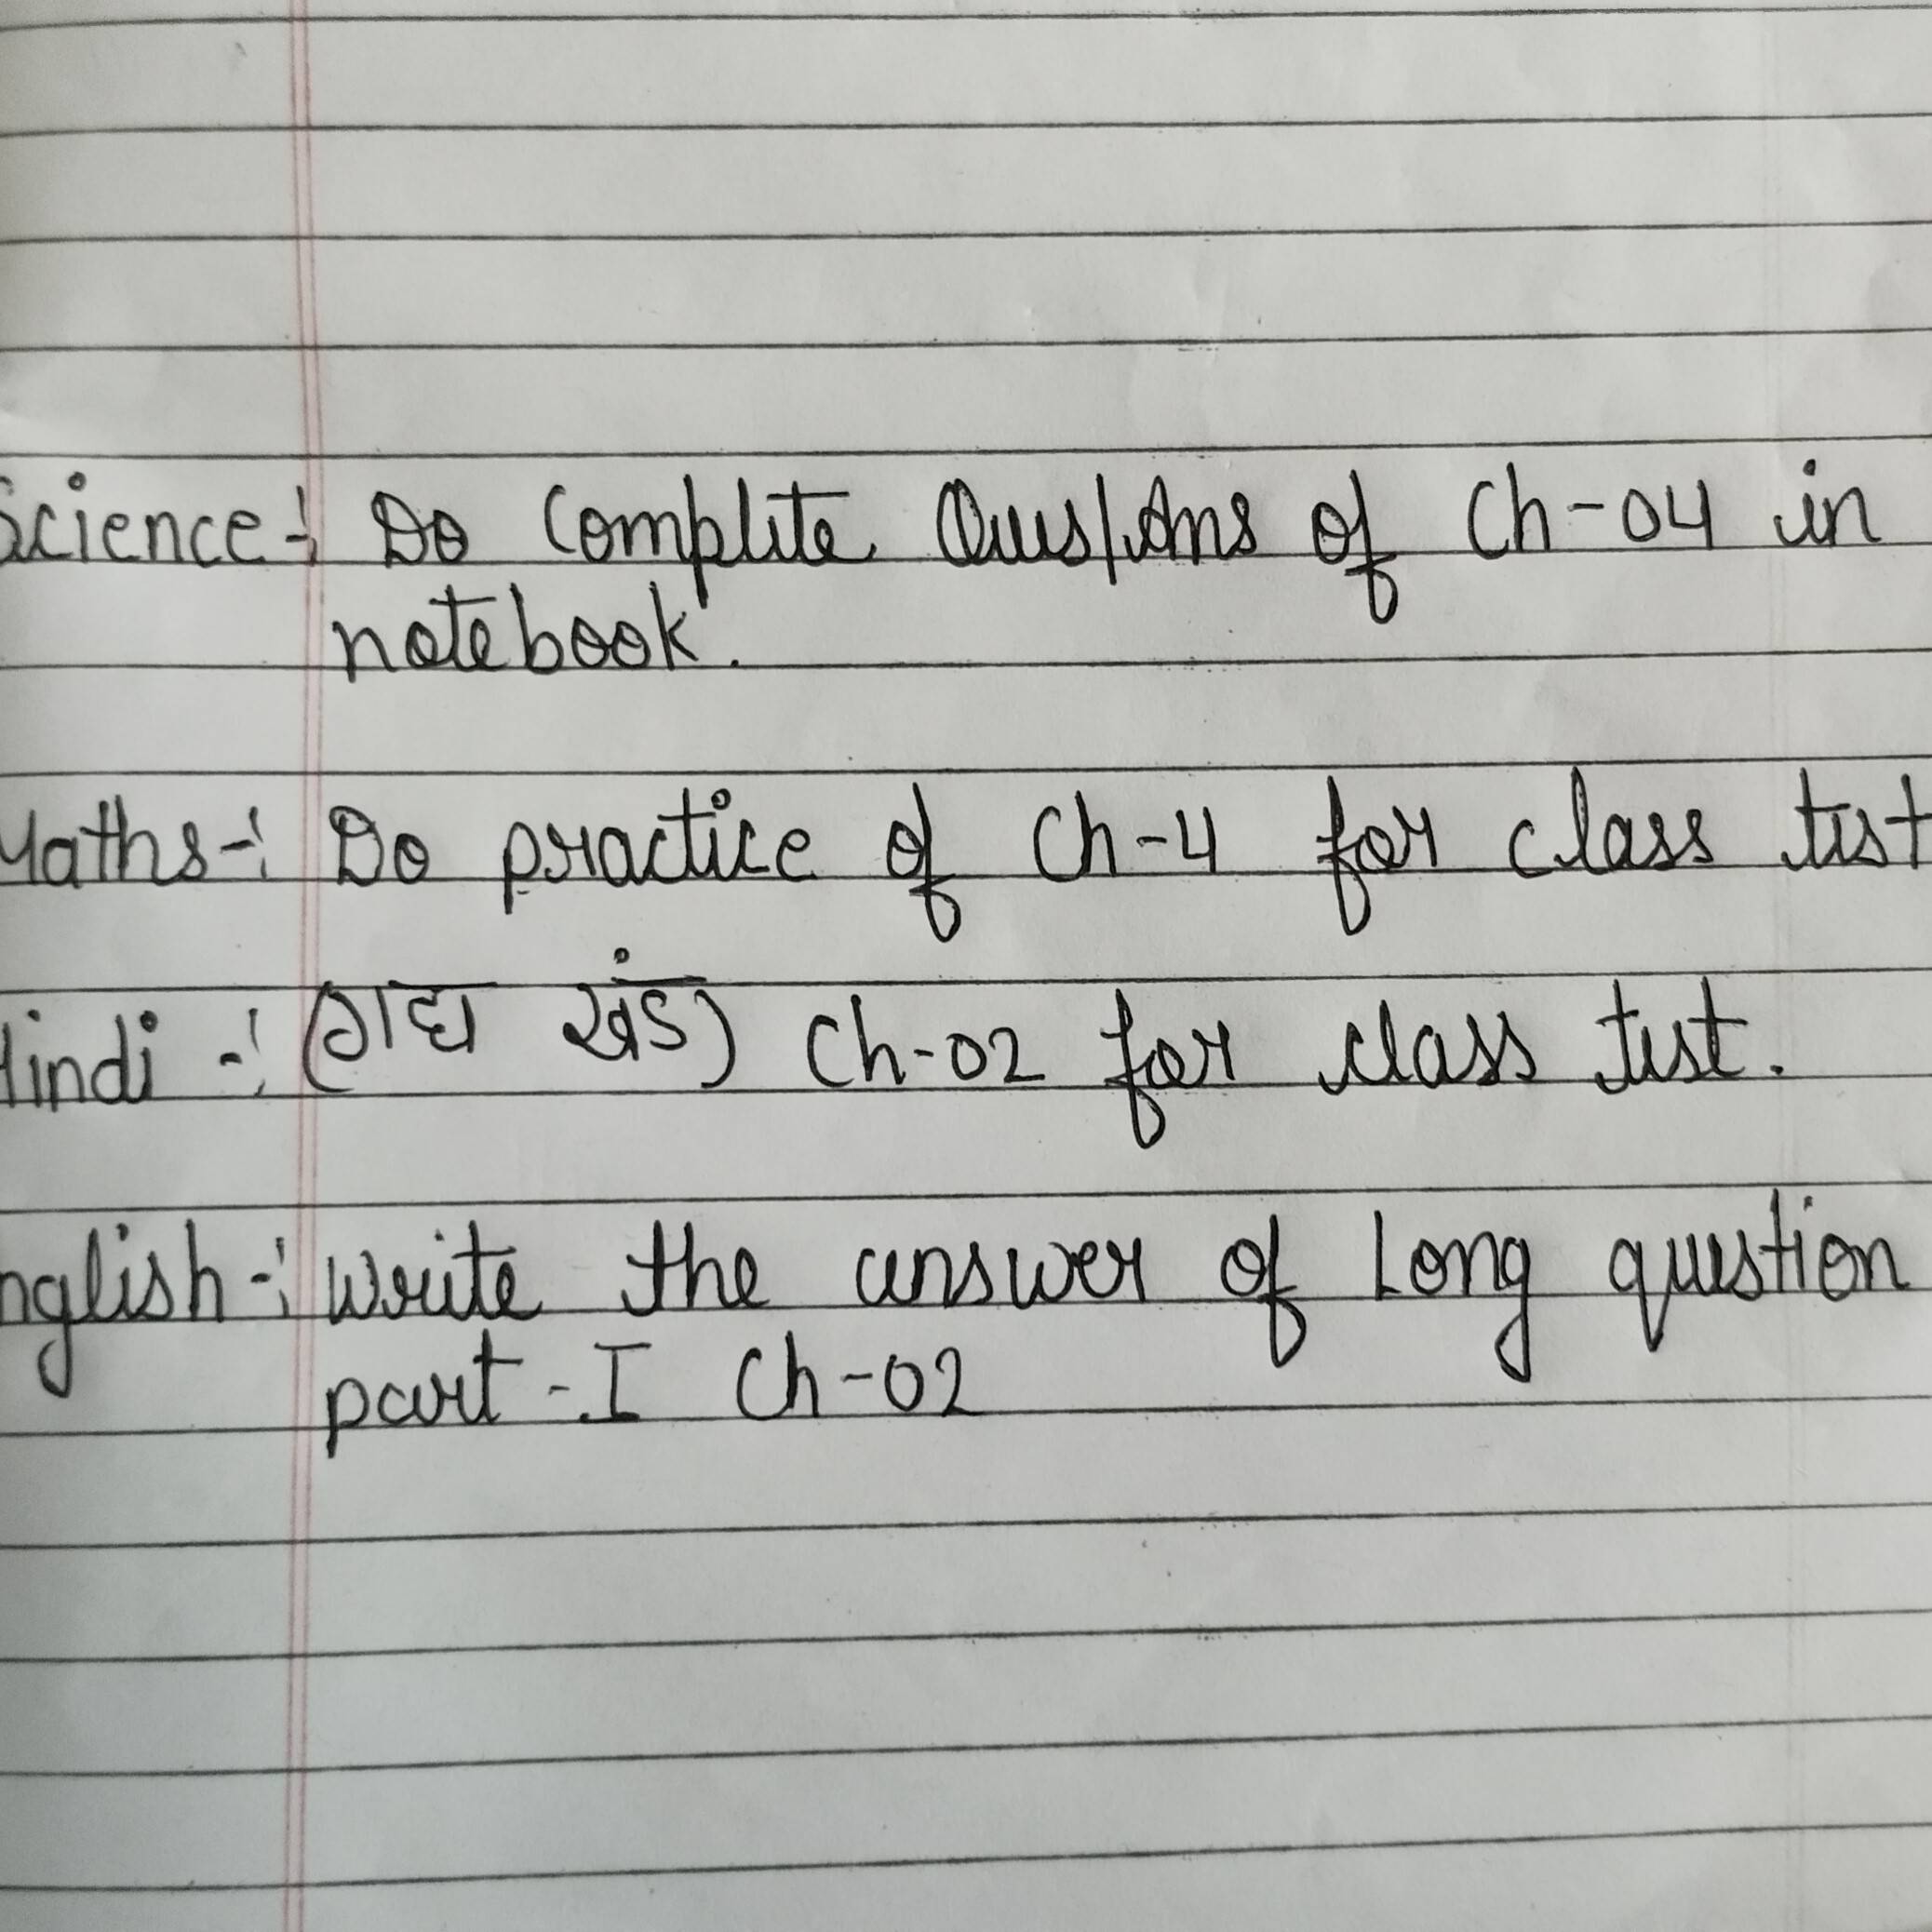 Science-: Do Complite Ques/Ans of Ch-04 in
notebook.
Maths-: Do practice of Ch-4 for class test
Hindi -: (गद्य खंड) Ch-02 for class test.
nglish-: Write the answer of Long question
part-I Ch-02